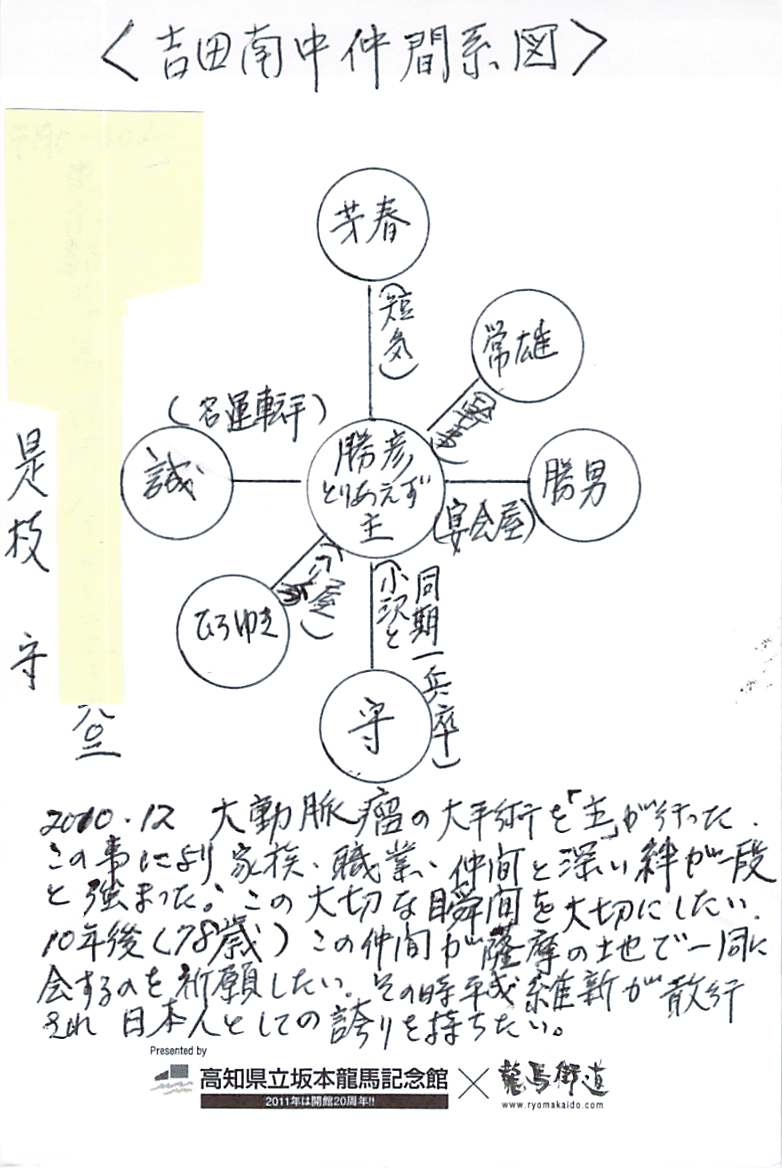 ＜吉田南中仲間系図＞
芳春
(短気)
常雄
(名運転手)
誠
勝彦
とりあえず
主
勝男
(宴会屋)
ひろゆき
同期一兵卒)
(小沢と
守
是枝 守
2010.12 大動脈瘤の大手術を「主」が行った.
この事により家族、職業、仲間と深い絆が一段
と強まった。この大切な瞬間を大切にしたい.
10年後(78歳)この仲間が薩摩の地で一同に
会するのを祈願したい。その時平成維新が散行
され 日本人としての誇りを持ちたい。
Presented by
高知県立坂本龍馬記念館 × 龍馬街道
2011年は開館20周年!!
www.ryomakaido.com